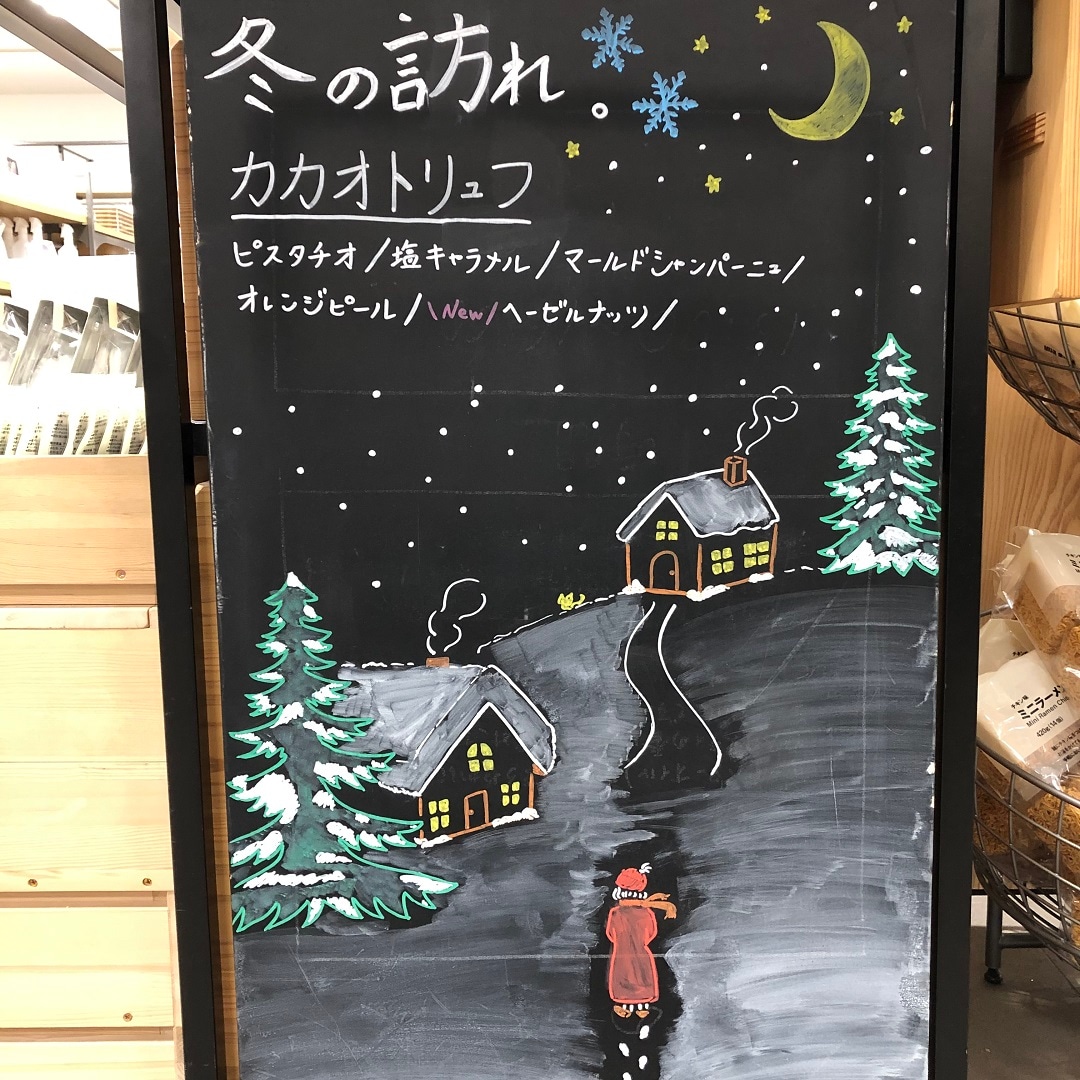 冬の訪れ
カカオトリュフ
ピスタチオ/塩キャラメル/マールドシャンパーニュ/
オレンジピール/\New/ヘーゼルナッツ/
チキン味
ミニラーメン
Mini Ramen Chic
420g(14個)